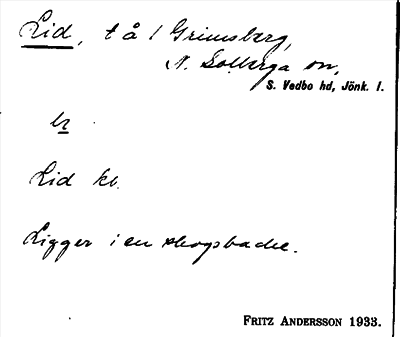 Lid, t å 1 Grimsberg,
N. Solberga sn,
S. Vedbo hd, Jönk. l.
Lid
Ligger i en skogsbacke.
FRITZ ANDERSSON 1933.